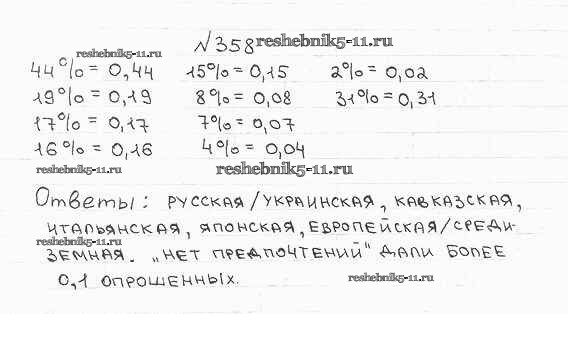 №358 reshebnik5-11.ru
reshebnik5-11.ru
44% = 0,44 15% = 0,15 2% = 0,02
19% = 0,19 8% = 0,08 31% = 0,31
17% = 0,17 7% = 0,07
16% = 0,16 4% = 0,04
reshebnik5-11.ru reshebnik5-11.ru
Ответы: РУССКАЯ/УКРАИНСКАЯ, КАВКАЗСКАЯ,
ИТАЛЬЯНСКАЯ, ЯПОНСКАЯ, ЕВРОПЕЙСКАЯ/СРЕДИ-
reshebnik5-11.ru
ЗЕМНАЯ. „НЕТ ПРЕДПОЧТЕНИЙ" ДАЛИ БОЛЕЕ
0,1 ОПРОШЕННЫХ.
reshebnik5-11.ru